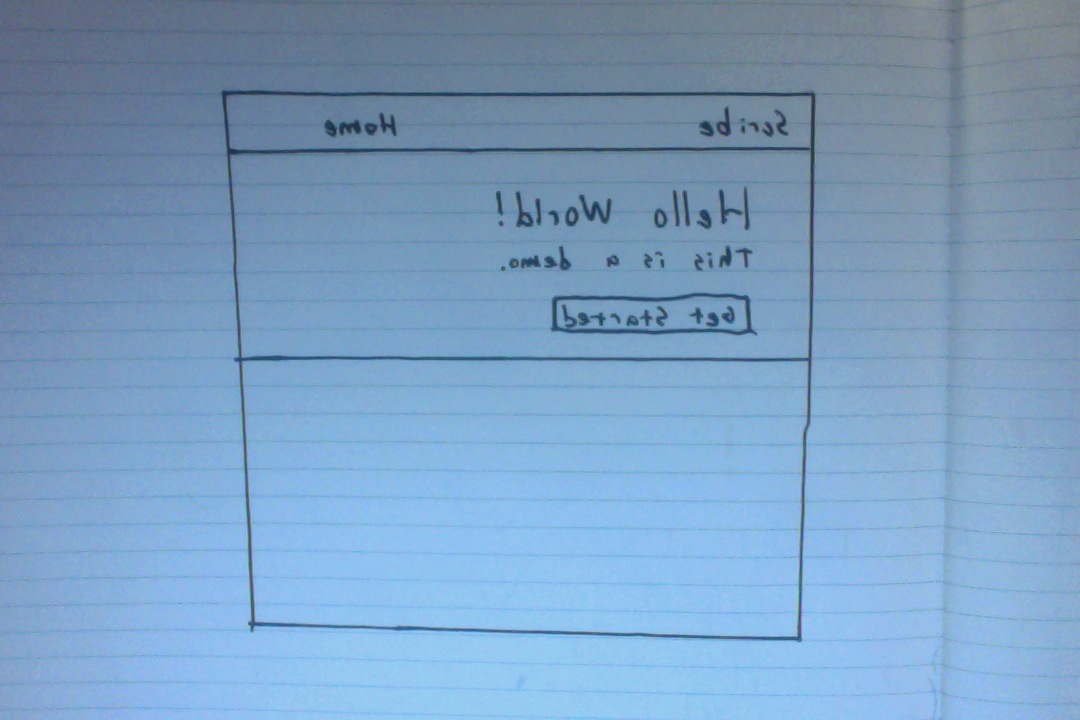 Scribe Home
Hello World!
This is a demo.
Get Started